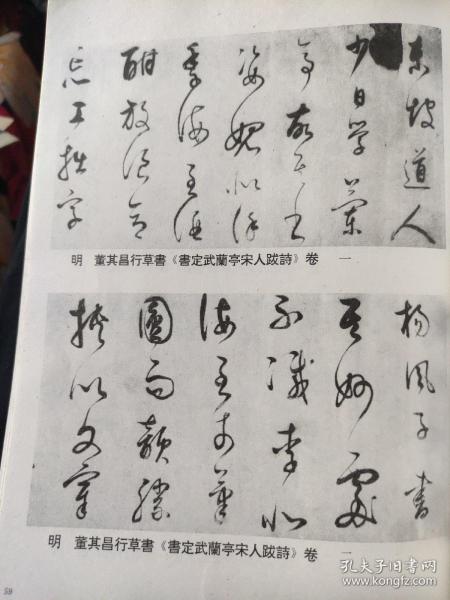 東坡道人
少日學蘭
亭故其書
姿媚似徐
季海至酒
酣放浪意
忘工拙字
明 董其昌行草書《書定武蘭亭宋人跋詩》卷 一
楊風子書
其妙處
不減李北
海至於筆
圓而韻勝
挾以文章
明 董其昌行草書《書定武蘭亭宋人跋詩》卷 一
孔夫子旧书网